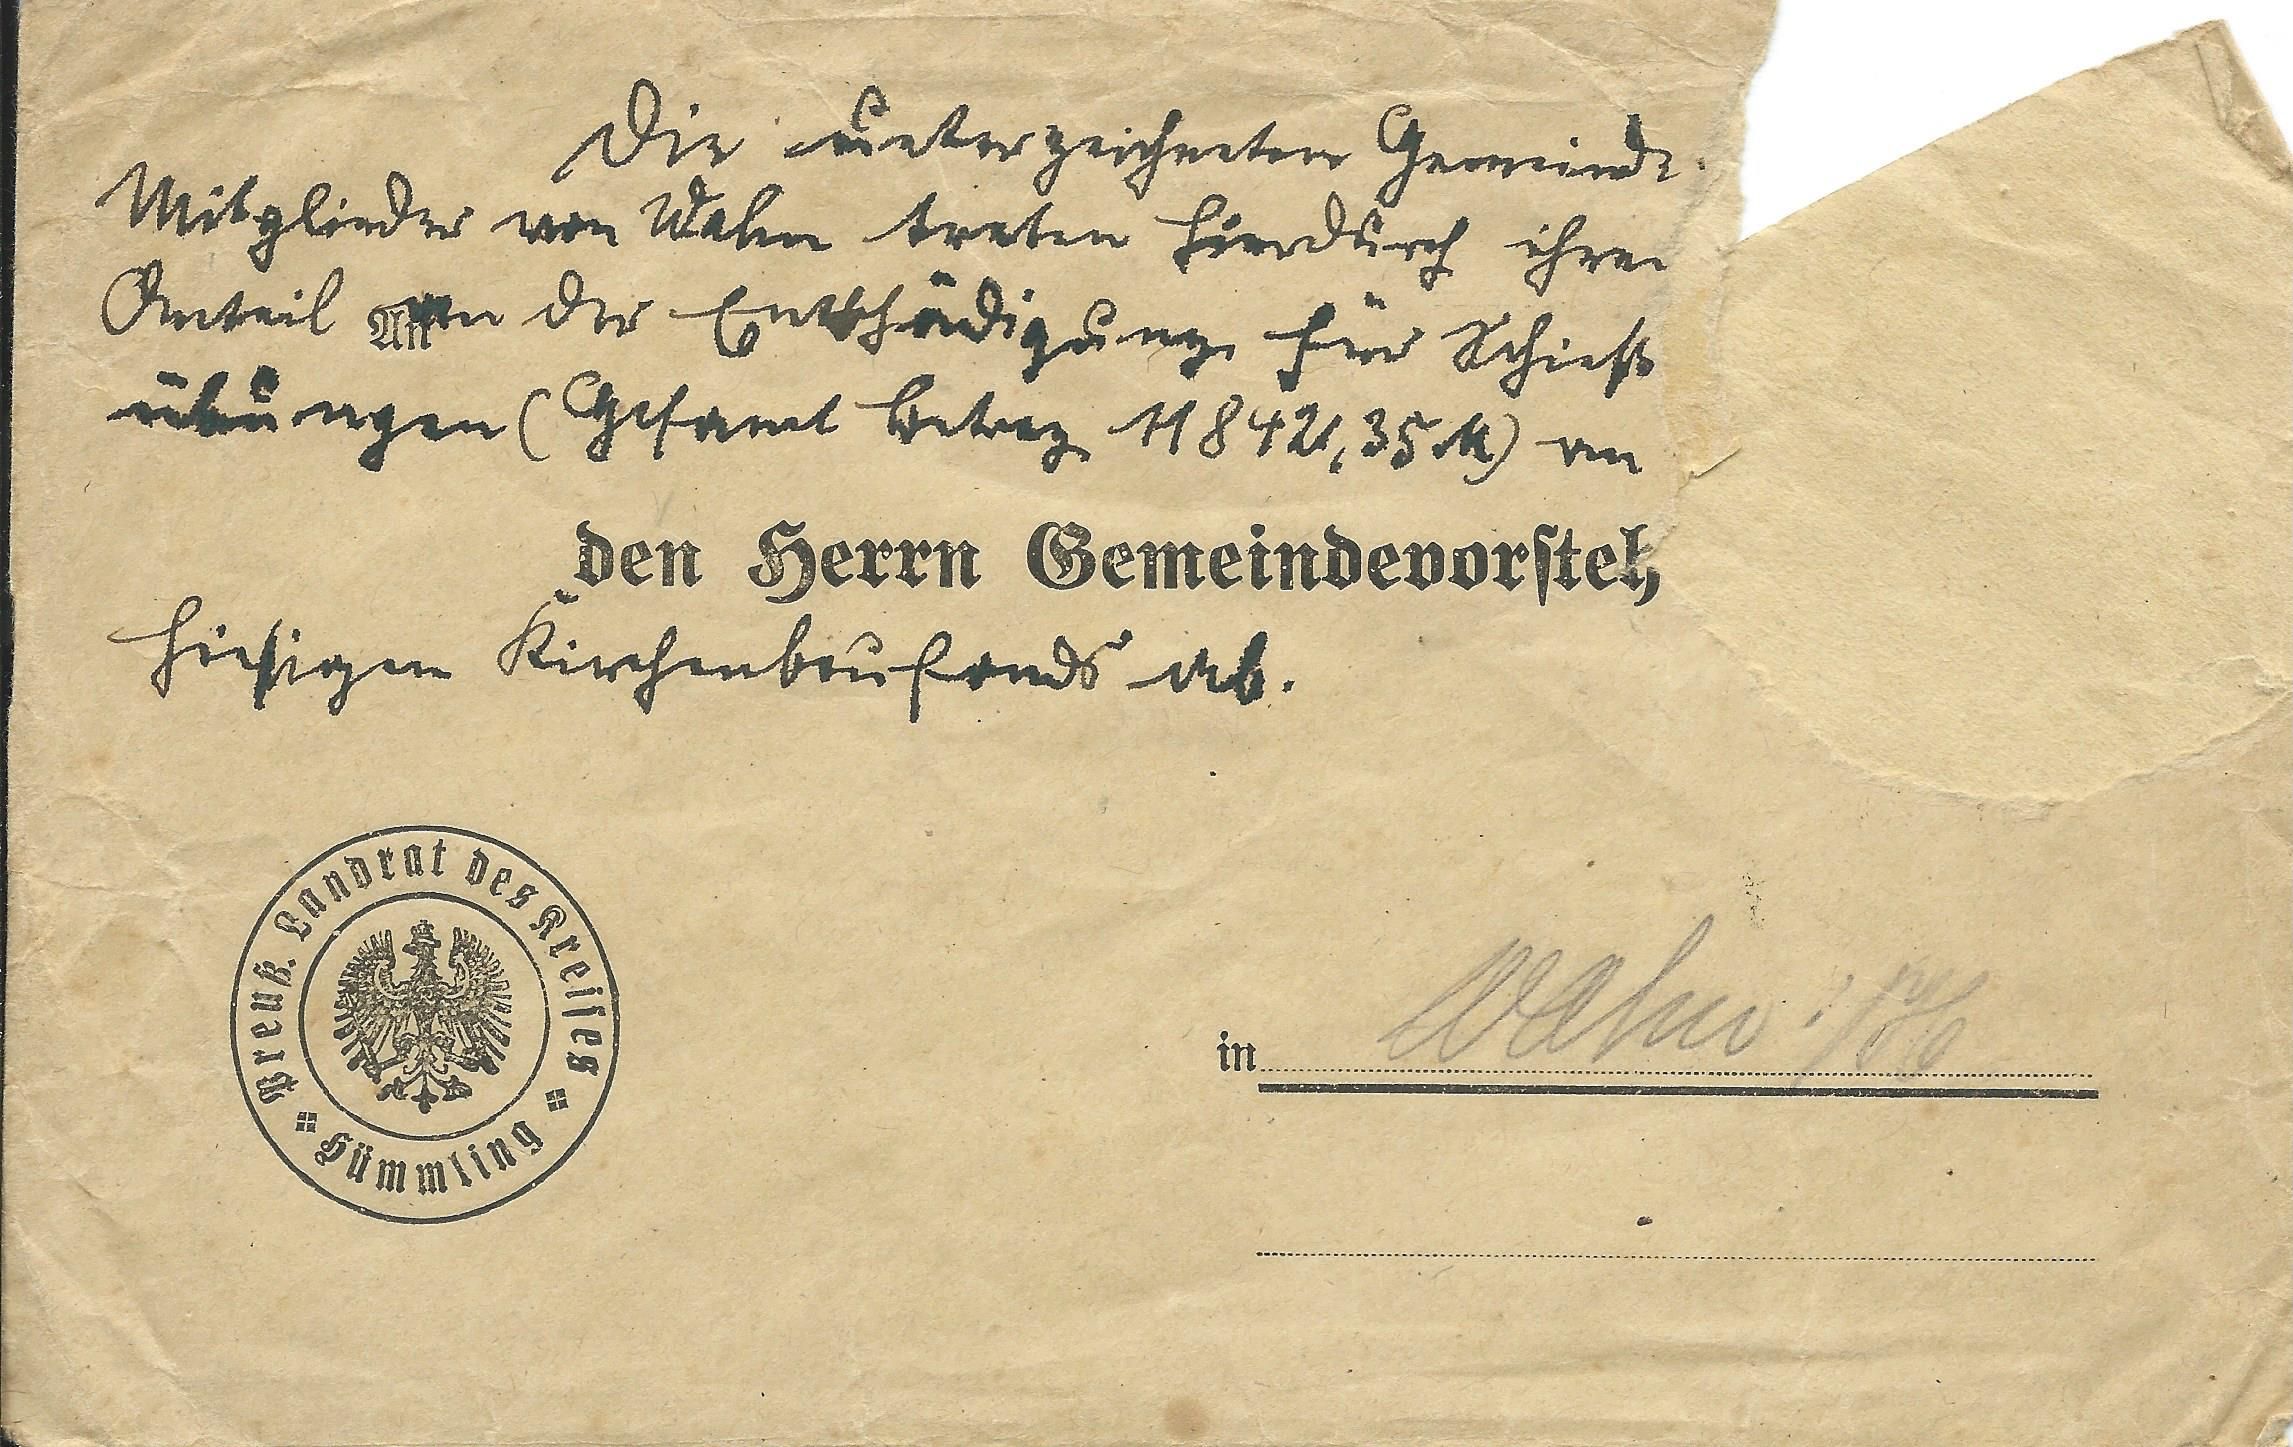 Die unterzeichneten Gemeinde
Mitglieder von Wahn treten hierdurch ihren
Anteil An von der Entschädigung für Schieß
übungen (Gesamt betrag 11842,35 M) an
den Herrn Gemeindevorsteh
hiesigen Kirchenbaufonds ab.
Preuß. Landrat des Kreises
Hümmling
in Wahn